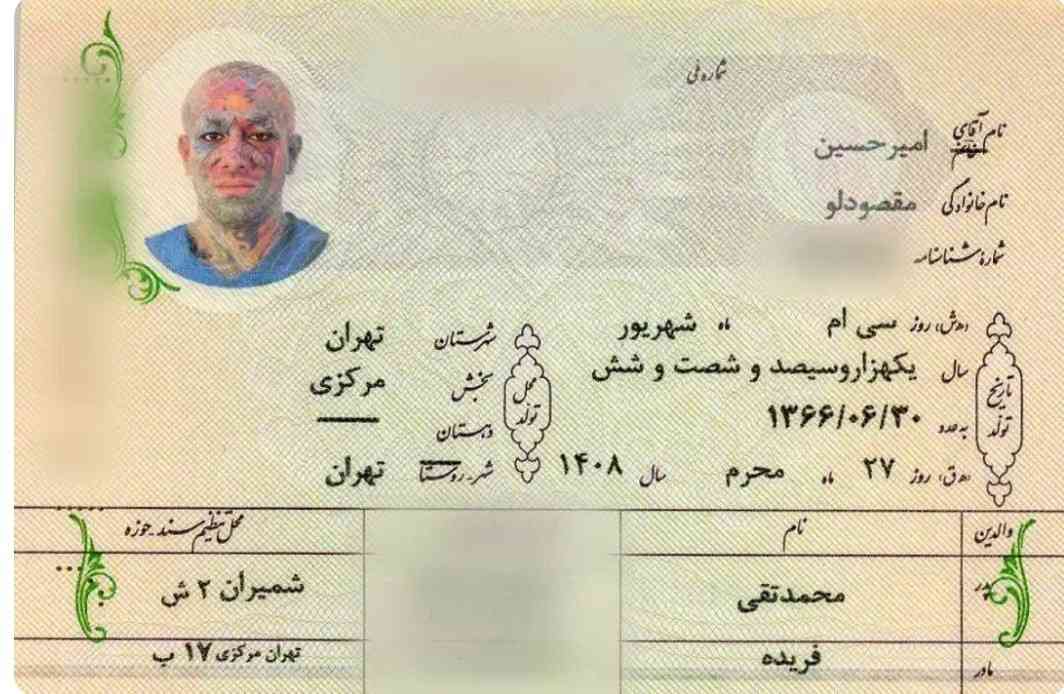 شماره ملی
نام آقای امیرحسین
نام خانوادگی مقصودلو
شماره شناسنامه
تاریخ تولد
(ه‍.ش) روز سی ام ماه شهریور
سال یکهزاروسیصد و شصت و شش
به عدد ۱۳۶۶/۰۶/۳۰
(ه‍.ق) روز ۲۷ ماه محرم سال ۱۴۰۸
محل تولد
شهرستان تهران
بخش مرکزی
دهستان ——
شهر-روستا تهران
والدین نام محل تنظیم سند-حوزه
پدر محمدتقی شمیران ۲ ش
مادر فریده تهران مرکزی ۱۷ ب